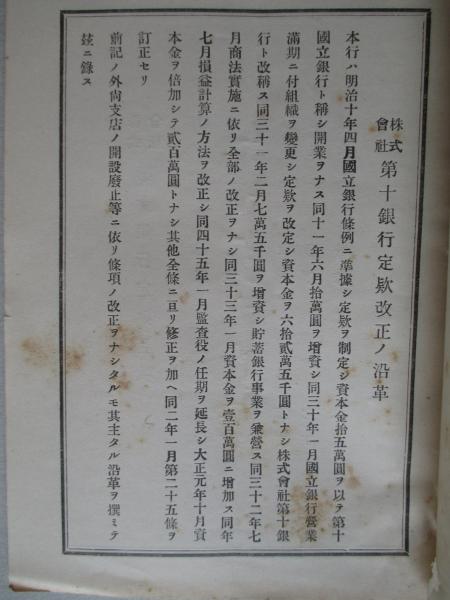 株式會社 第十銀行定欵改正ノ沿革
本行ハ明治十年四月國立銀行條例ニ準據シ定欵ヲ制定シ資本金拾五萬圓ヲ以テ第十
國立銀行ト稱シ開業ヲナス同十一年六月拾萬圓ヲ增資シ同三十年一月國立銀行營業
滿期ニ付組織ヲ變更シ定欵ヲ改定シ資本金ヲ六拾貳萬五千圓トナシ株式會社第十銀
行ト改稱ス同三十一年二月七萬五千圓ヲ增資シ貯蓄銀行事業ヲ兼營ス同三十二年七
月商法實施ニ依リ全部ノ改正ヲナシ同三十三年一月資本金ヲ壹百萬圓ニ增加ス同年
七月損益計算ノ方法ヲ改正シ同四十五年一月監查役ノ任期ヲ延長シ大正元年十月資
本金ヲ倍加シテ貳百萬圓トナシ其他全條ニ亘リ修正ヲ加ヘ同二年一月第二十五條ヲ
訂正セリ
前記ノ外尙支店ノ開設廢止等ニ依リ條項ノ改正ヲナシタルモ其主タル沿革ヲ撰ミテ
玆ニ錄ス